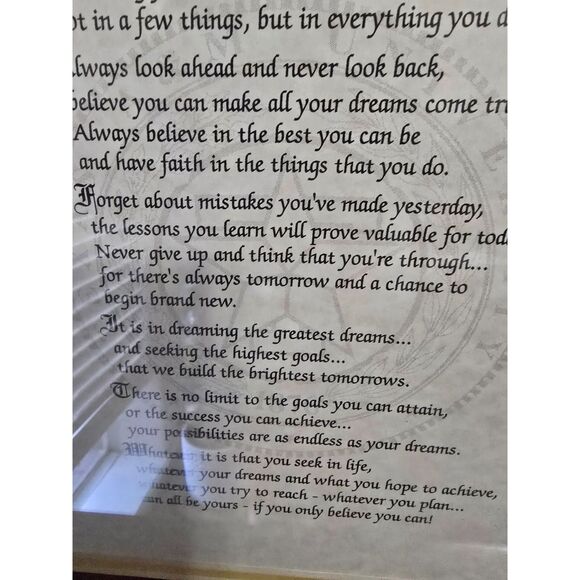 ot in a few things, but in everything you d
lways look ahead and never look back,
believe you can make all your dreams come tr
Always believe in the best you can be
and have faith in the things that you do.
Forget about mistakes you've made yesterday,
the lessons you learn will prove valuable for tod
Never give up and think that you're through...
for there's always tomorrow and a chance to
begin brand new.
It is in dreaming the greatest dreams...
and seeking the highest goals...
that we build the brightest tomorrows.
There is no limit to the goals you can attain,
or the success you can achieve...
your possibilities are as endless as your dreams.
Whatever it is that you seek in life,
whatever your dreams and what you hope to achieve,
whatever you try to reach - whatever you plan...
can all be yours - if you only believe you can!